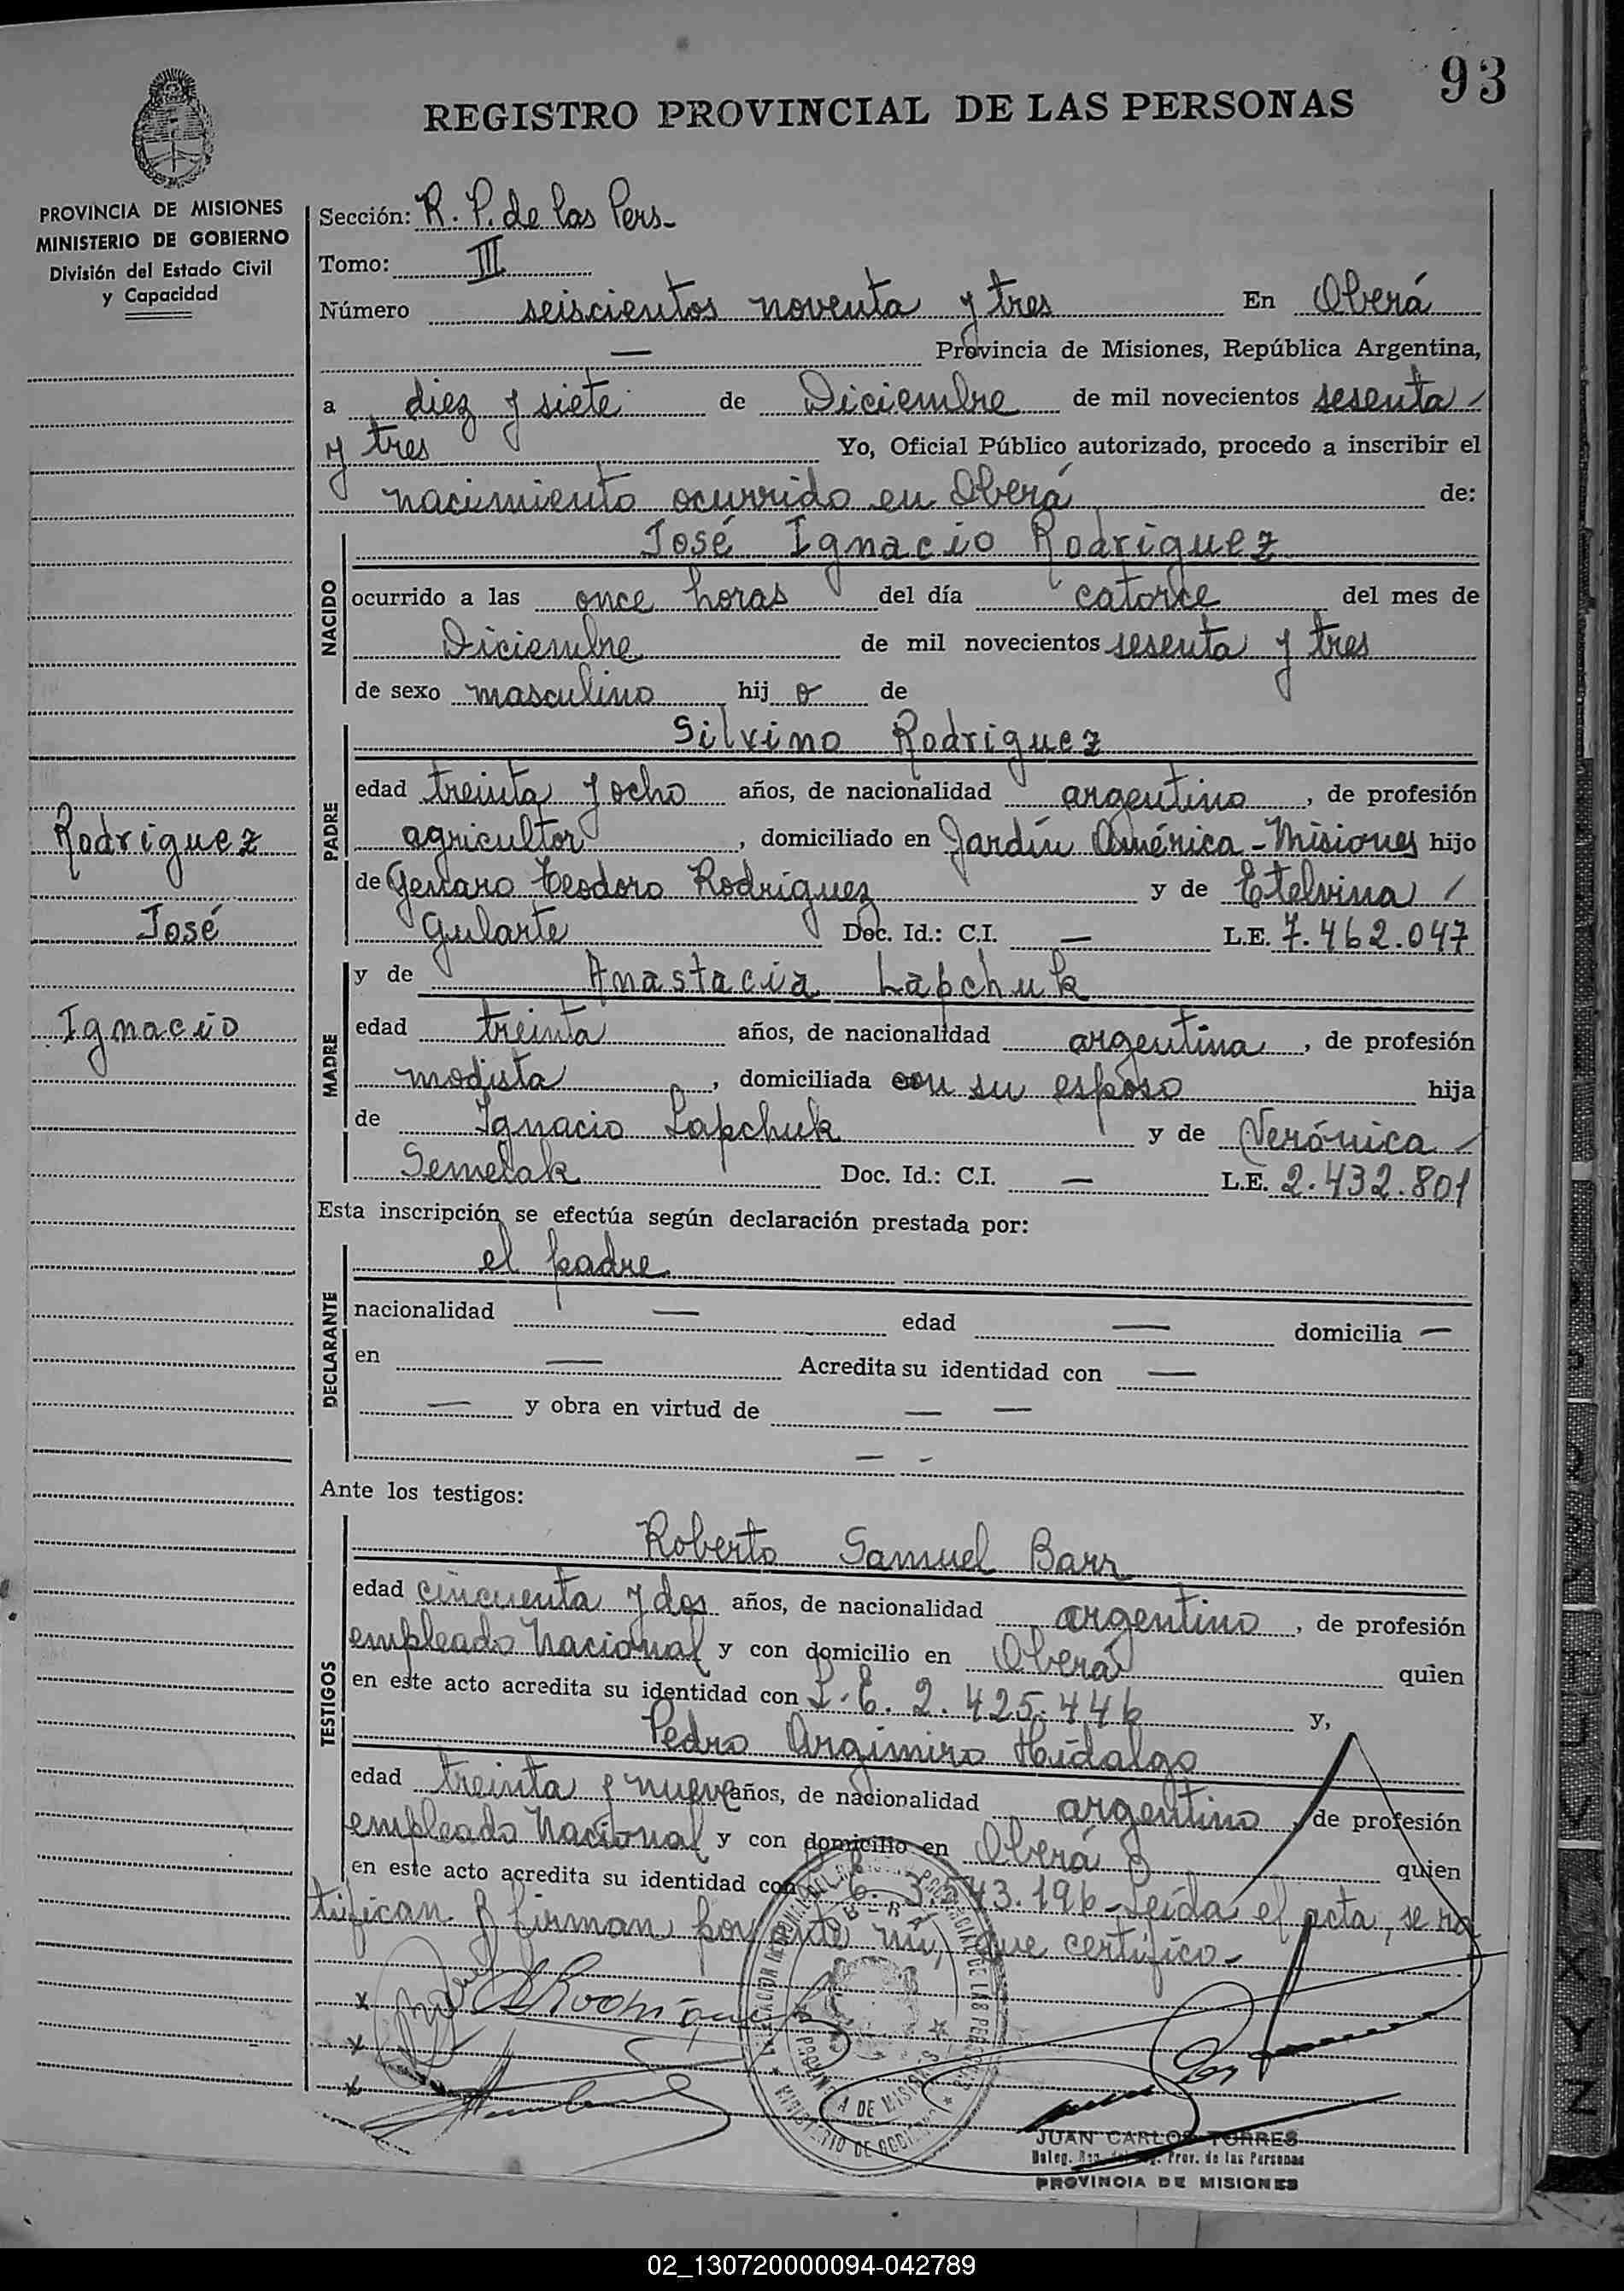 93
REGISTRO PROVINCIAL DE LAS PERSONAS
PROVINCIA DE MISIONES
MINISTERIO DE GOBIERNO
División del Estado Civil
y Capacidad
Rodriguez
José
Ignacio
Sección: R. P. de las Pers-
Tomo: III
Número seiscientos noventa y tres En Oberá
— Provincia de Misiones, República Argentina,
a diez y siete de Diciembre de mil novecientos sesenta
y tres Yo, Oficial Público autorizado, procedo a inscribir el
nacimiento ocurrido en Oberá de:
NACIDO
José Ignacio Rodriguez
ocurrido a las once horas del día catorce del mes de
Diciembre de mil novecientos sesenta y tres
de sexo masculino hij o de
PADRE
Silvino Rodriguez
edad treinta y ocho años, de nacionalidad argentino, de profesión
agricultor, domiciliado en Jardín América - Misiones hijo
de Genaro Teodoro Rodríguez y de Etelvina /
Gularte Doc. Id.: C.I. — L.E. 7.462.047
MADRE
y de Anastacia Lapchuk
edad treinta años, de nacionalidad argentina, de profesión
modista, domiciliada con su esposo hija
de Ignacio Lapchuk y de Verónica /
Semelak Doc. Id.: C.I. — L.E. 2.432.801
Esta inscripción se efectúa según declaración prestada por:
DECLARANTE
el padre
nacionalidad — edad — domicilia —
en — Acredita su identidad con —
— y obra en virtud de — —
— -
Ante los testigos:
TESTIGOS
Roberto Samuel Barr
edad cincuenta y dos años, de nacionalidad argentino, de profesión
empleado Nacional y con domicilio en Oberá quien
en este acto acredita su identidad con L.E. 2.425.446 y,
Pedro Argimiro Hidalgo
edad treinta y nueve años, de nacionalidad argentino, de profesión
empleado Nacional y con domicilio en Oberá quien
en este acto acredita su identidad con 196 - Leída el acta, se ra
tifican y firman por ante mí, que certifico -
x Rodriguez
x
x
MINISTERIO DE GOBIERNO
DE LAS PERSONAS
PROVINCIA DE MISIONES
JUAN CARLOS TORRES
Deleg. Prov. de las Personas
PROVINCIA DE MISIONES
X
Y
Z
02_130720000094-042789